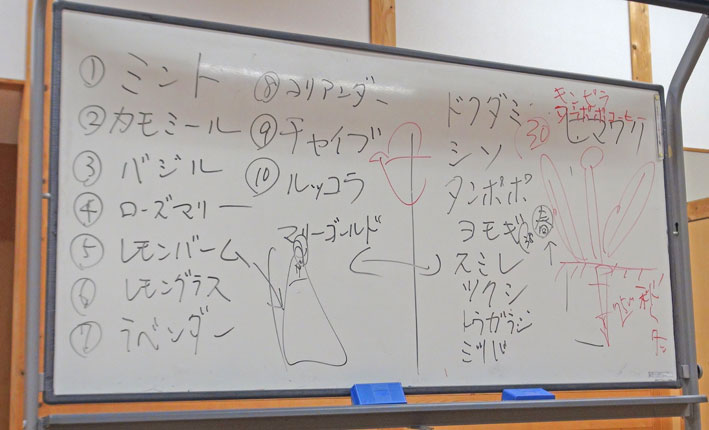 ① ミント
② カモミール
③ バジル
④ ローズマリー
⑤ レモンバーム
⑥ レモングラス
⑦ ラベンダー
⑧ コリアンダー
⑨ チャイブ
⑩ ルッコラ
マリーゴールド
ドクダミ
シソ
タンポポ
ヨモギ
春
スミレ
ツクシ
トウガラシ
ミツバ
キンピラ
タンポポコーヒー
ヒマワリ
30